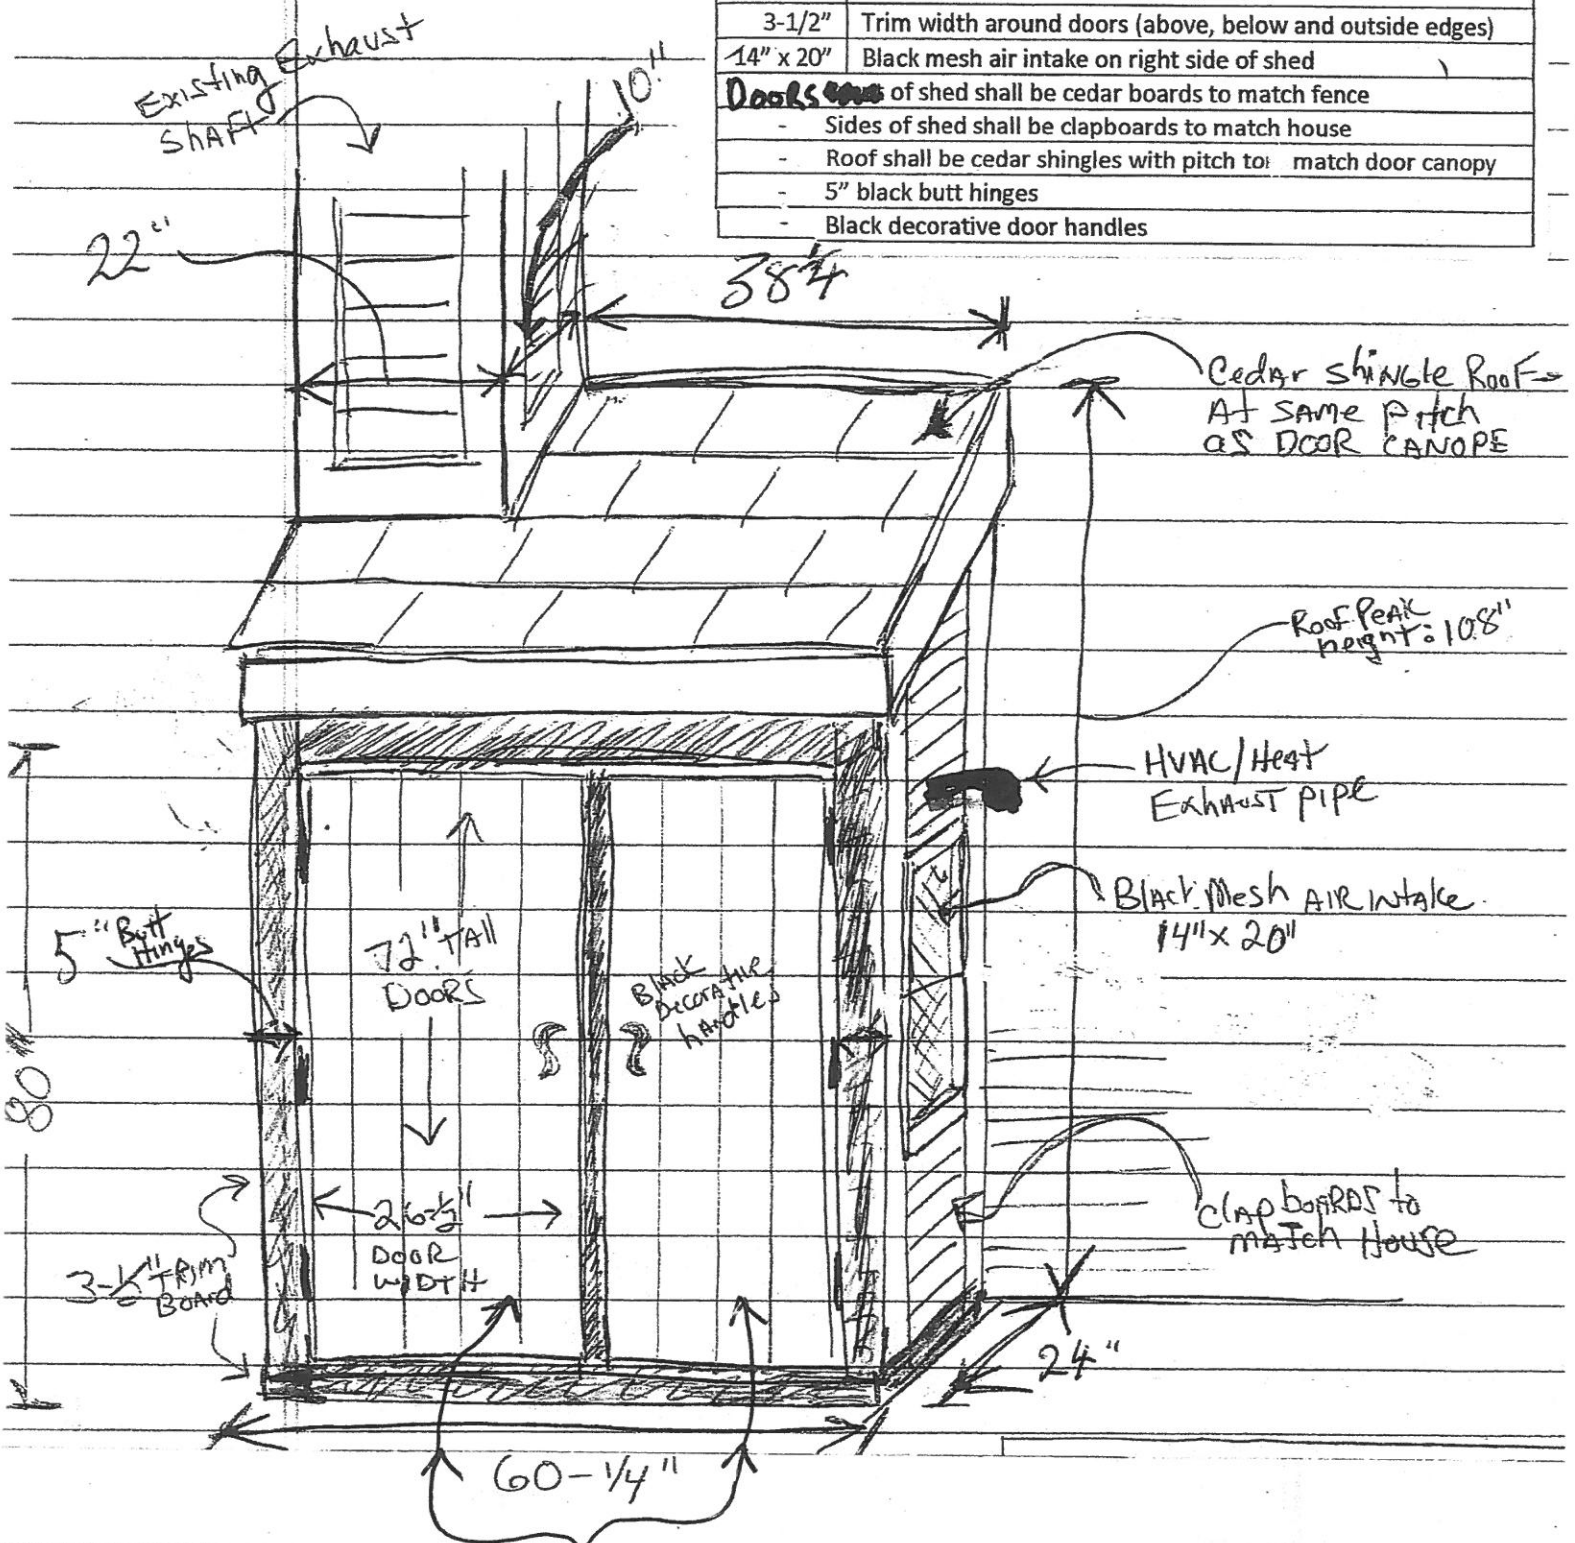 3-1/2" Trim width around doors (above, below and outside edges)
14" x 20" Black mesh air intake on right side of shed
DOORS of shed shall be cedar boards to match fence
- Sides of shed shall be clapboards to match house
- Roof shall be cedar shingles with pitch to match door canopy
- 5" black butt hinges
- Black decorative door handles
Existing Exhaust
Shaft
10"
22"
38 1/4
Cedar Shingle Roof
At Same Pitch
as DOOR CANOPE
Roof Peak
height: 108"
HVAC/Heat
Exhaust pipe
Black Mesh AIR INtake
14" x 20"
5" Butt
Hinges
72" TAll
DOORS
Black
Decorative
handles
80"
26-1/2"
DOOR
WIDTH
3-1/2" TRIM
BOARD
ClapboARDS to
MATCH House
24"
60-1/4"